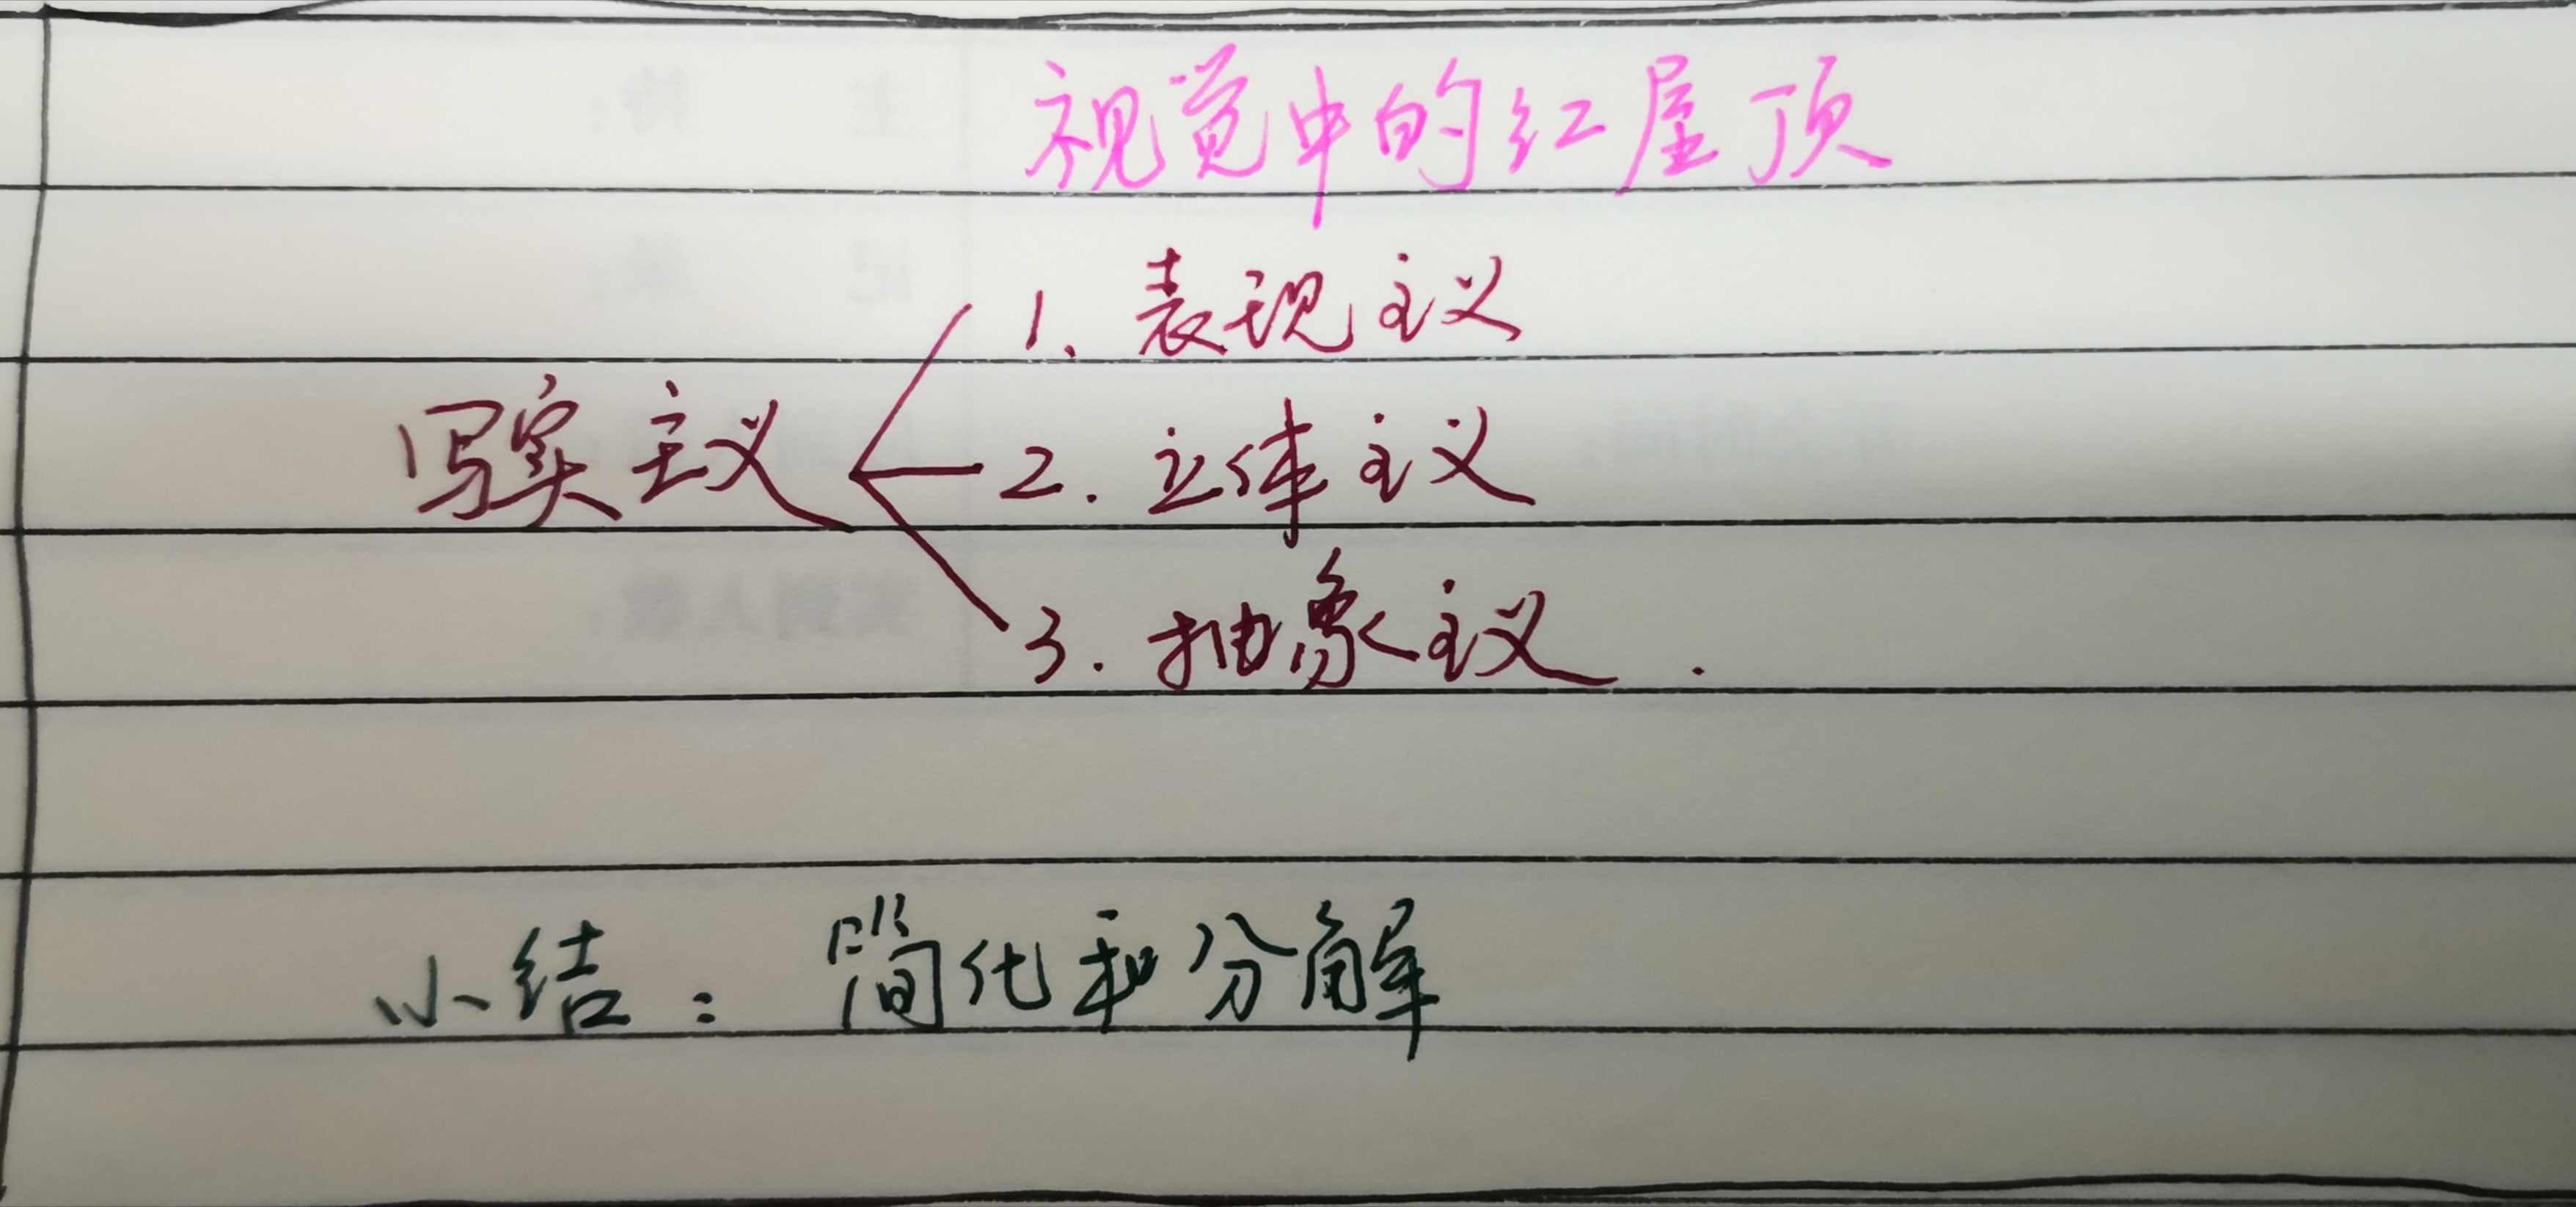 视觉中的红屋顶
1、表现主义
写实主义
2. 立体主义
3. 抽象主义.
小结：简化和分解